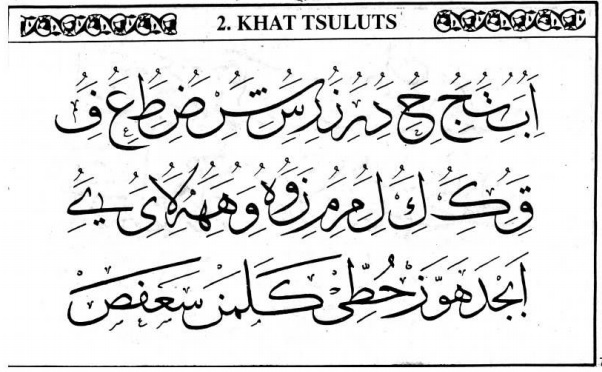 2. KHAT TSULUTS
ا ب ت ج ح د ر ز س ش ض ط ع ف
ق ك ك ل م م ن و ه و ه ه لا ي ي
ابجد هوز حطي كلمن سعفص